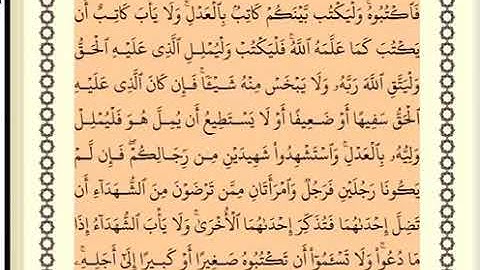 فَٱكْتُبُوهُ وَلْيَكْتُب بَّيْنَكُمْ كَاتِبٌۢ بِٱلْعَدْلِ وَلَا يَأْبَ كَاتِبٌ أَن
يَكْتُبَ كَمَا عَلَّمَهُ ٱللَّهُ فَلْيَكْتُبْ وَلْيُمْلِلِ ٱلَّذِى عَلَيْهِ ٱلْحَقُّ
وَلْيَتَّقِ ٱللَّهَ رَبَّهُۥ وَلَا يَبْخَسْ مِنْهُ شَيْـًٔا فَإِن كَانَ ٱلَّذِى عَلَيْهِ
ٱلْحَقُّ سَفِيهًا أَوْ ضَعِيفًا أَوْ لَا يَسْتَطِيعُ أَن يُمِلَّ هُوَ فَلْيُمْلِلْ
وَلِيُّهُۥ بِٱلْعَدْلِ وَٱسْتَشْهِدُوا۟ شَهِيدَيْنِ مِن رِّجَالِكُمْ فَإِن لَّمْ
يَكُونَا رَجُلَيْنِ فَرَجُلٌ وَٱمْرَأَتَانِ مِمَّن تَرْضَوْنَ مِنَ ٱلشُّهَدَآءِ أَن
تَضِلَّ إِحْدَىٰهُمَا فَتُذَكِّرَ إِحْدَىٰهُمَا ٱلْأُخْرَىٰ وَلَا يَأْبَ ٱلشُّهَدَآءُ إِذَا
مَا دُعُوا۟ وَلَا تَسْـَٔمُوٓا۟ أَن تَكْتُبُوهُ صَغِيرًا أَوْ كَبِيرًا إِلَىٰٓ أَجَلِهِۦ